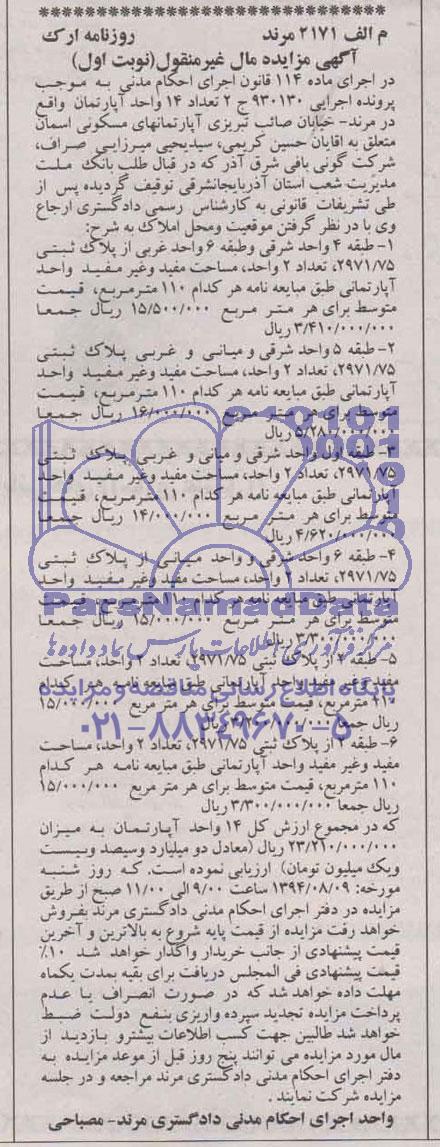 م الف ۲۱۷۱ مرند روزنامه ارک
آگهی مزایده مال غیرمنقول(نوبت اول)
در اجرای ماده ۱۱۴ قانون اجرای احکام مدنی به موجب
پرونده اجرایی ۹۳۰۱۳۰ ج ۲ تعداد ۱۴ واحد آپارتمان واقع
در مرند- خیابان صائب تبریزی آپارتمانهای مسکونی آسمان
متعلق به آقایان حسین کریمی، سیدیحیی میرزایی صراف،
شرکت گونی بافی شرق آذر که در قبال طلب بانک ملت
مدیریت شعب استان آذربایجانشرقی توقیف گردیده پس از
طی تشریفات قانونی به کارشناس رسمی دادگستری ارجاع
وی با در نظر گرفتن موقعیت ومحل املاک به شرح:
۱- طبقه ۴ واحد شرقی وطبقه ۶ واحد غربی از پلاک ثبتی
۲۹۷۱/۷۵، تعداد ۲ واحد، مساحت مفید وغیر مفید واحد
آپارتمانی طبق مبایعه نامه هر کدام ۱۱۰ مترمربع، قیمت
متوسط برای هر متر مربع ۱۵/۵۰۰/۰۰۰ ریال جمعا
۳/۴۱۰/۰۰۰/۰۰۰ ریال
۲- طبقه ۵ واحد شرقی و میانی و غربی پلاک ثبتی
۲۹۷۱/۷۵، تعداد ۲ واحد، مساحت مفید وغیر مفید واحد
آپارتمانی طبق مبایعه نامه هر کدام ۱۱۰ مترمربع، قیمت
متوسط برای هر متر مربع ۱۶/۰۰۰/۰۰۰ ریال جمعا
۵/۲۸۰/۰۰۰/۰۰۰ ریال
۳- طبقه اول واحد شرقی و میانی و غربی پلاک ثبتی
۲۹۷۱/۷۵، تعداد ۲ واحد، مساحت مفید وغیر مفید واحد
آپارتمانی طبق مبایعه نامه هر کدام ۱۱۰ مترمربع، قیمت
متوسط برای هر متر مربع ۱۴/۰۰۰/۰۰۰ ریال جمعا
۴/۶۲۰/۰۰۰/۰۰۰ ریال
۴- طبقه ۶ واحد شرقی و واحد میانی از پلاک ثبتی
۲۹۷۱/۷۵، تعداد ۲ واحد، مساحت مفید وغیر مفید واحد
آپارتمانی طبق مبایعه نامه هر کدام ۱۱۰ مترمربع، قیمت
متوسط برای هر متر مربع ۱۵/۰۰۰/۰۰۰ ریال جمعا
۳/۳۰۰/۰۰۰/۰۰۰ ریال
ParsNamadData
مرکز فرآوری اطلاعات پارس نماد داده ها
۵- طبقه از پلاک ثبتی ۲۹۷۱/۷۵، تعداد ۲ واحد، مساحت
مفید وغیر مفید واحد آپارتمانی طبق مبایعه نامه هر کدام
پایگاه اطلاع رسانی مناقصه و مزایده
۱۱۰ مترمربع، قیمت متوسط برای هر متر مربع ۱۵/۰۰۰/۰۰۰
ریال جمعا ۳/۳۰۰/۰۰۰/۰۰۰ ریال
۰۲۱-۸۸۳۴۹۶۷۰-۵
۶- طبقه ۲ از پلاک ثبتی ۲۹۷۱/۷۵، تعداد ۲ واحد، مساحت
مفید وغیر مفید واحد آپارتمانی طبق مبایعه نامه هر کدام
۱۱۰ مترمربع، قیمت متوسط برای هر متر مربع ۱۵/۰۰۰/۰۰۰
ریال جمعا ۳/۳۰۰/۰۰۰/۰۰۰ ریال
که در مجموع ارزش کل ۱۴ واحد آپارتمان به میزان
۲۳/۲۱۰/۰۰۰/۰۰۰ ریال (معادل دو میلیارد وسیصد وبیست
ویک میلیون تومان) ارزیابی نموده است. که روز شنبه
مورخه: ۱۳۹۴/۰۸/۰۹ ساعت ۹/۰۰ الی ۱۱/۰۰ صبح از طریق
مزایده در دفتر اجرای احکام مدنی دادگستری مرند بفروش
خواهد رفت مزایده از قیمت پایه شروع به بالاترین و آخرین
قیمت پیشنهادی از جانب خریدار واگذار خواهد شد ۱۰٪
قیمت پیشنهادی فی المجلس دریافت برای بقیه بمدت یکماه
مهلت داده خواهد شد که در صورت انصراف یا عدم
پرداخت مزایده تجدید سپرده واریزی بنفع دولت ضبط
خواهد شد طالبین جهت کسب اطلاعات بیشترو بازدید از
مال مورد مزایده می توانند پنج روز قبل از موعد مزایده به
دفتر اجرای احکام مدنی دادگستری مرند مراجعه و در جلسه
مزایده شرکت نمایند .
واحد اجرای احکام مدنی دادگستری مرند- مصباحی